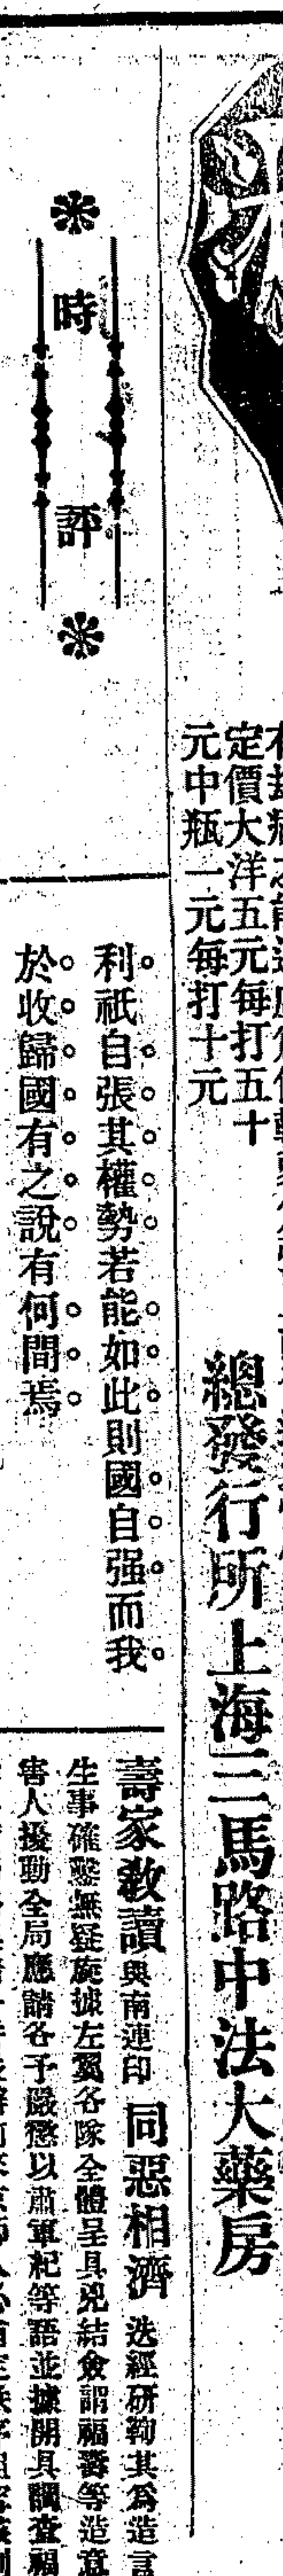 定價大洋五元每打五十
元中瓶一元每打十元
總發行所上海三馬路中法大藥房
時評
利祇自張其權勢若能如此則國自强而我
於收歸國有之說有何間焉
壽家敎讀與南連印同惡相濟迭經研鞫其爲造言
生事確鑿無疑旋據左翼各隊全體呈具兇結僉謂福壽等造意
害人擾動全局應請各予嚴懲以肅軍紀等語並據開具調查福